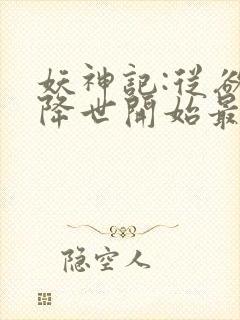 妖神記:從
降世開始最
隐空人